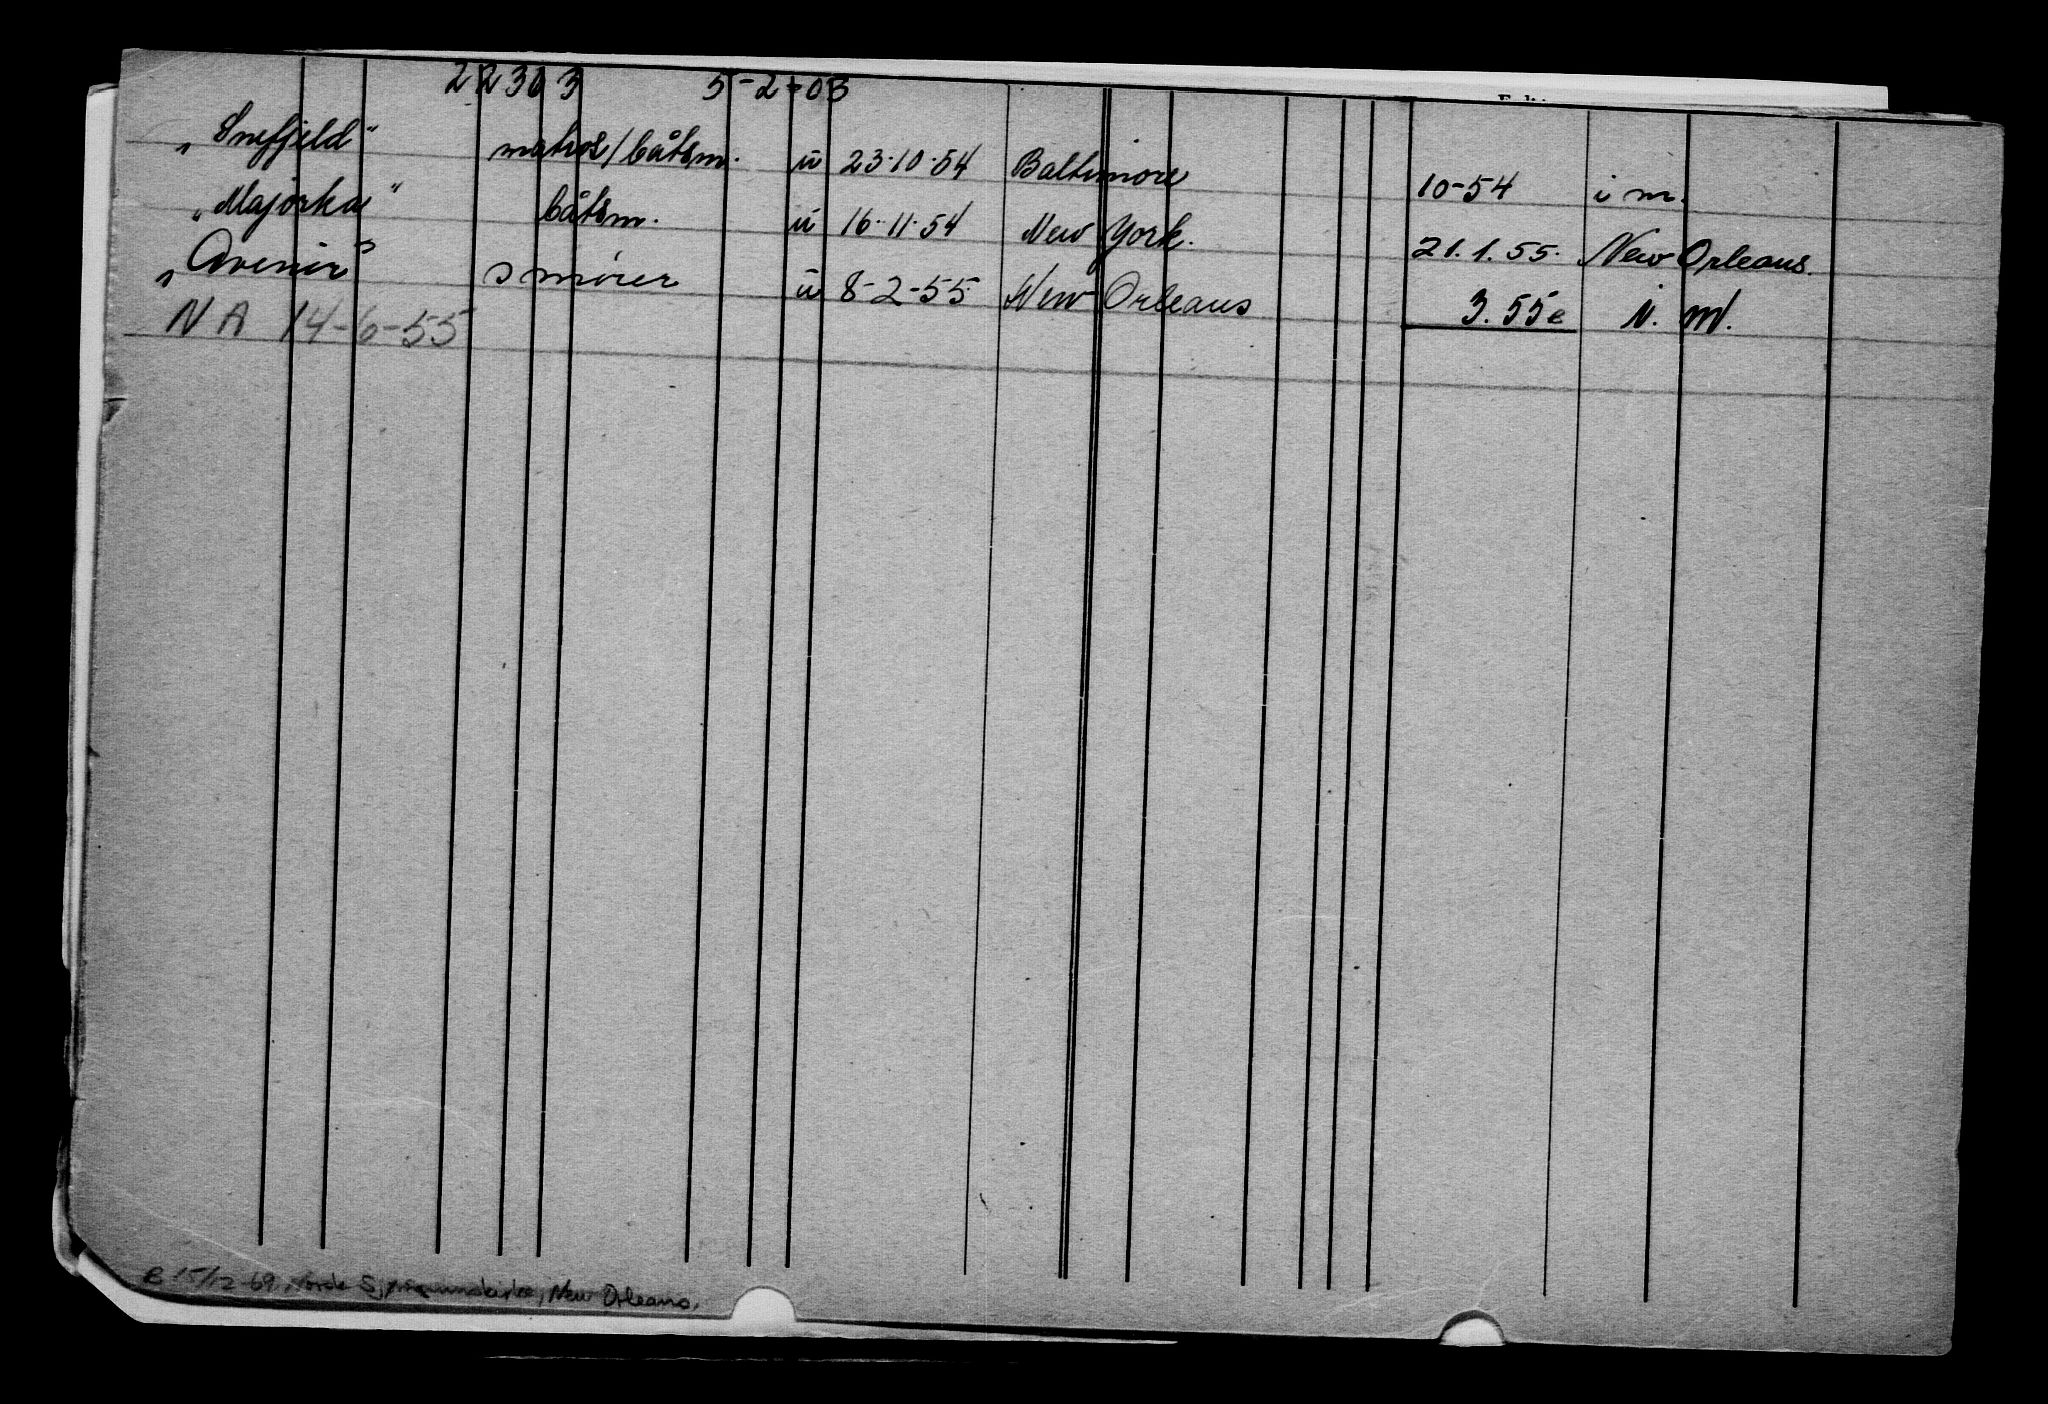 22303 5-2-03
"Snefjeld" matros/båtsm. ü 23.10.54 Baltimore 10-54 i m.
"Majorka" båtsm. ü 16.11.54 New York. 21.1.55. New Orleans.
"Avenir" smører ü 8-2-55 New Orleans 3.55 e i. m.
NA 14-6-55
B 15/12-69, Norske Sjømannskirke, New Orleans.